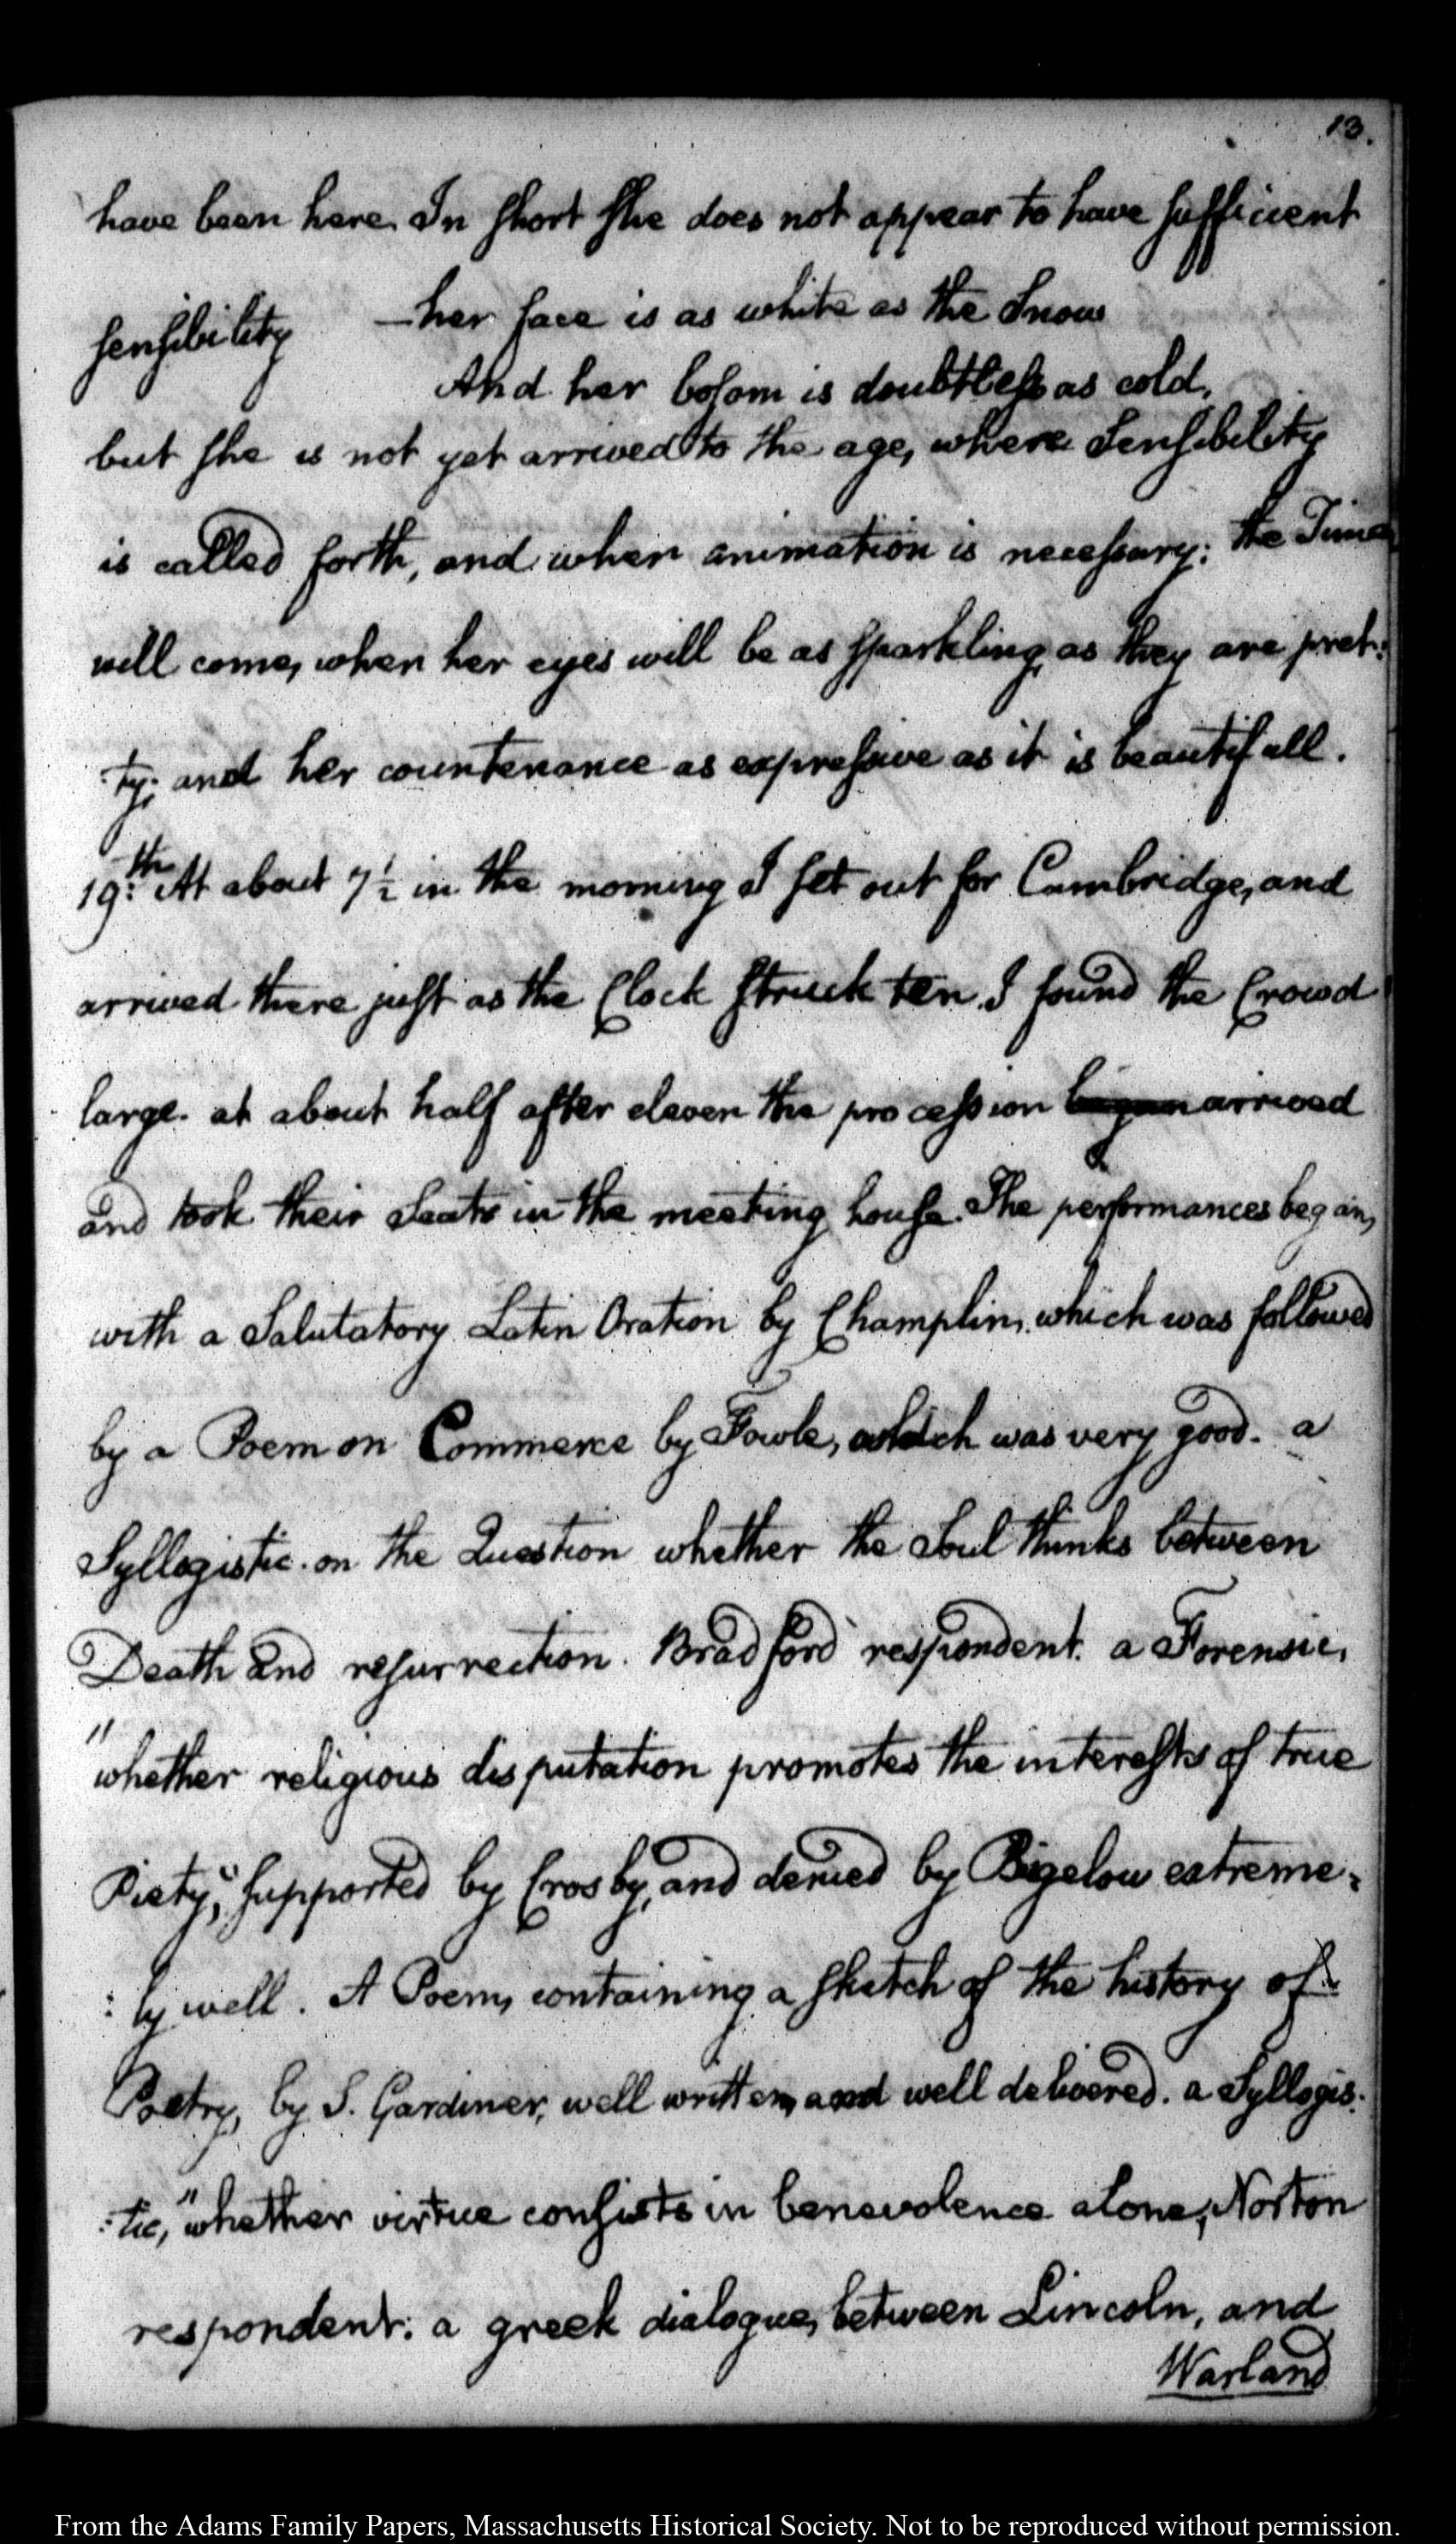 13.
have been here. In short she does not appear to have sufficient
sensibility —her face is as white as the Snow
And her bosom is doubtless as cold,
but she is not yet arrived to the age, where Sensibility
is called forth, and when animation is necessary: the Time
will come, when her eyes will be as sparkling, as they are pret:
:ty; and her countenance as expressive as it is beautifull.
19:th At about 7½ in the morning I set out for Cambridge, and
arrived there just as the Clock struck ten. I found the Crowd
large. at about half after eleven the procession began arrived
and took their seats in the meeting house. The performances began,
with a Salutatory Latin Oration by Champlin, which was followed
by a Poem on Commerce by Fowle, which was very good. a
Syllogistic. on the Question whether the Soul thinks between
Death and resurrection. Bradford respondent. a Forensic,
"whether religious disputation promotes the interests of true
Piety," supported by Crosby, and denied by Bigelow extreme:
:ly well. A Poem, containing a sketch of the history of
Poetry, by S. Gardiner, well written, and well delivered. a Syllogis:
:tic, "whether virtue consists in benevolence alone, Norton
respondent: a greek dialogue, between Lincoln, and
Warland
From the Adams Family Papers, Massachusetts Historical Society. Not to be reproduced without permission.